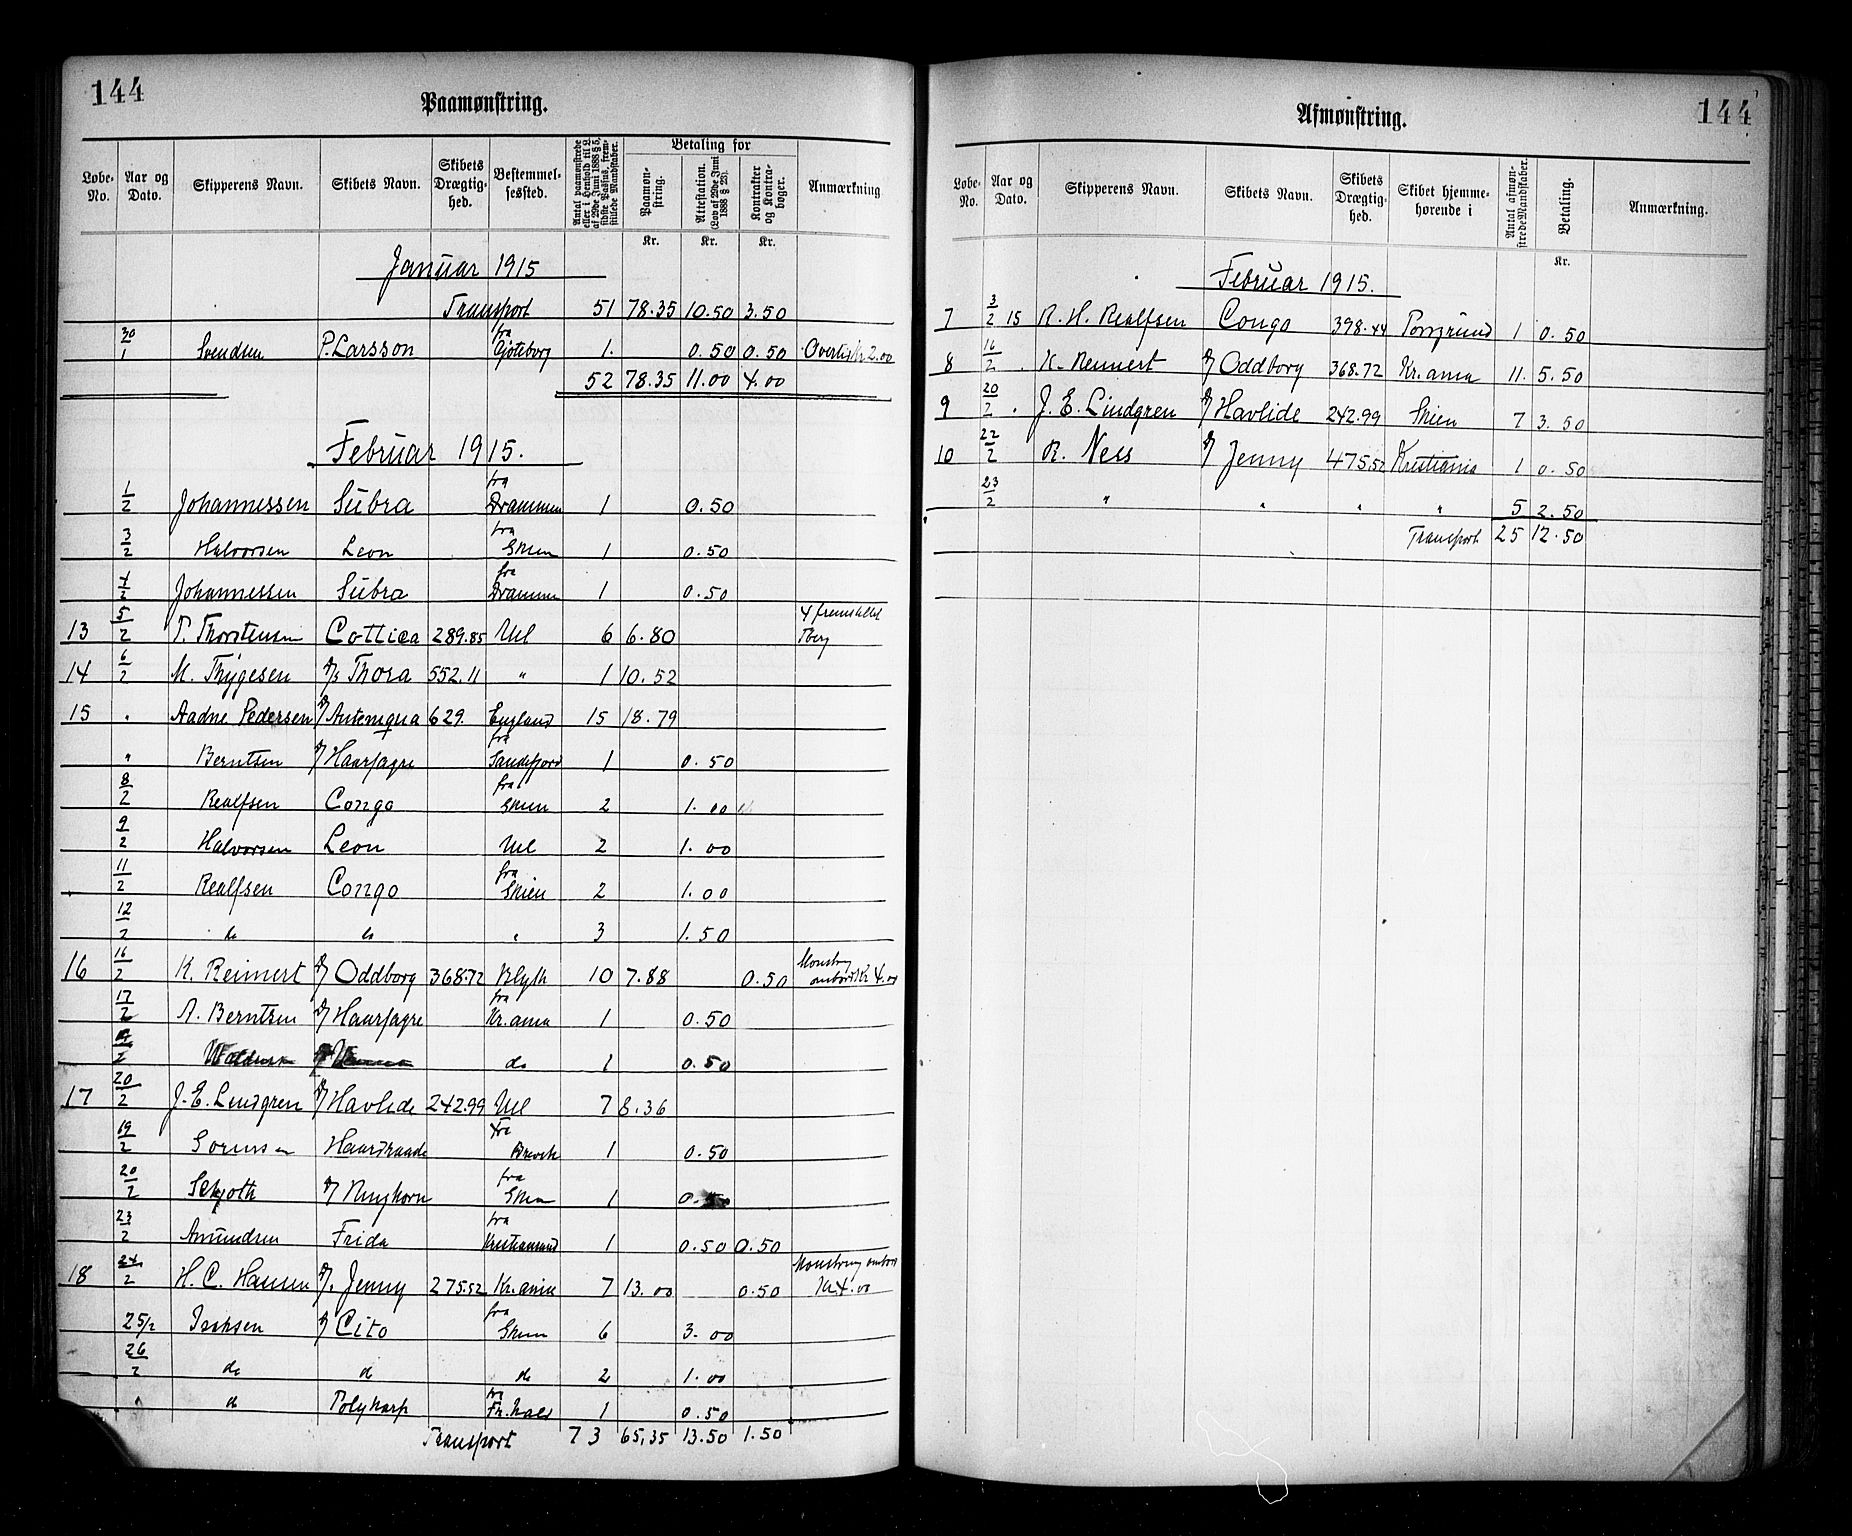 144
Paamønstring.
Løbe-No. Aar og Dato. Skipperens Navn. Skibets Navn. Skibets Drægtig-hed. Bestemmel-sessted. Antal paamønstrede eller i Henhold til L. af 29de Juni 1888 § 5, sidste Passus, frem-stillede Mandskaber. Betaling for Paamøn-string. Attestation. (Lov af 29de Juni 1888 § 25). Kontrakter og Kontra-bøger. Anmærkning
Kr. Kr. Kr.
Januar 1915
Transport 51 78.35 10.50 3.50
30/1 Svendsen P. Larsson fra Gøteborg 1. 0.50 0.50 Overtid kr 2.00
52 78.35 11.00 4.00
Februar 1915.
1/2 Johannessen Subra fra Drammen 1 0.50
3/2 Halvorsen Leon fra Skien 1 0.50
4/2 Johannessen Subra fra Drammen 1 0.50
13 5/2 T. Thorstensen Cottica 289.85 Utl 6 6.80 4 fremstillet Tberg
14 6/2 M. Thygesen D/S Thora 552.11 " 1 10.52
15 " Aadne Pedersen D/ Antemqua 629. England 15 18.79
" Berntsen D/ Haarfagre fra Sandefjord 1 0.50
8/2 Realfsen Congo fra Skien 2 1.00
9/2 Halvorsen Leon Utl 2 1.00
11/2 Realfsen Congo fra Skien 2 1.00
12/2 do do " 3 1.50
16 16/2 K. Reimert D/ Oddborg 368.72 Blyth 10 7.88 0.50 Monstring ombord Kr 4.00
17/2 A. Berntsen D/ Haarfagre fra Kr.ania 1 0.50
/2 do 1 0.50
17 20/2 J. E. Lindgren D/ Havlide 242.99 Utl 7 8.36
19/2 Sorensen Haardraade fra Brevik 1 0.50
20/2 Schjoth D/ Ringhorn fra Skien 1 0.50
23/2 Amundsen Frida fra Kristiansund 1 0.50 0.50
18 24/2 H. C. Hansen D/. Jenny 275.52 Kr.ania 7 13.00 0.50 Monstring ombord Kr 4.00
25/2 Isaksen D/ Cito fra Skien 6 3.00
26/2 do do do 2 1.00
" do Polykarp fra Fr.hald 1 0.50
Transport 73 65,35 13.50 1.50
144
Afmønstring.
Løbe-No. Aar og Dato. Skipperens Navn. Skibets Navn. Skibets Drægtig-hed. Skibet hjemme-hørende i Antal afmøn-strede Mandskaber. Betaling. Anmærkning.
Kr.
Februar 1915.
7 3/2 15 R. H. Realfsen Congo 398.44 Porsgrund 1 0.50
8 16/2 " K. Reimert D/ Oddborg 368.72 Kr.ania 11. 5.50
9 20/2 " J. E. Lindgren D/ Havlide 242.99 Skien 7 3.50
10 22/2 R. Ness D/ Jenny 475.52 Kristiania 1 0.50
23/2 " " " " 5 2.50
Transport 25 12.50